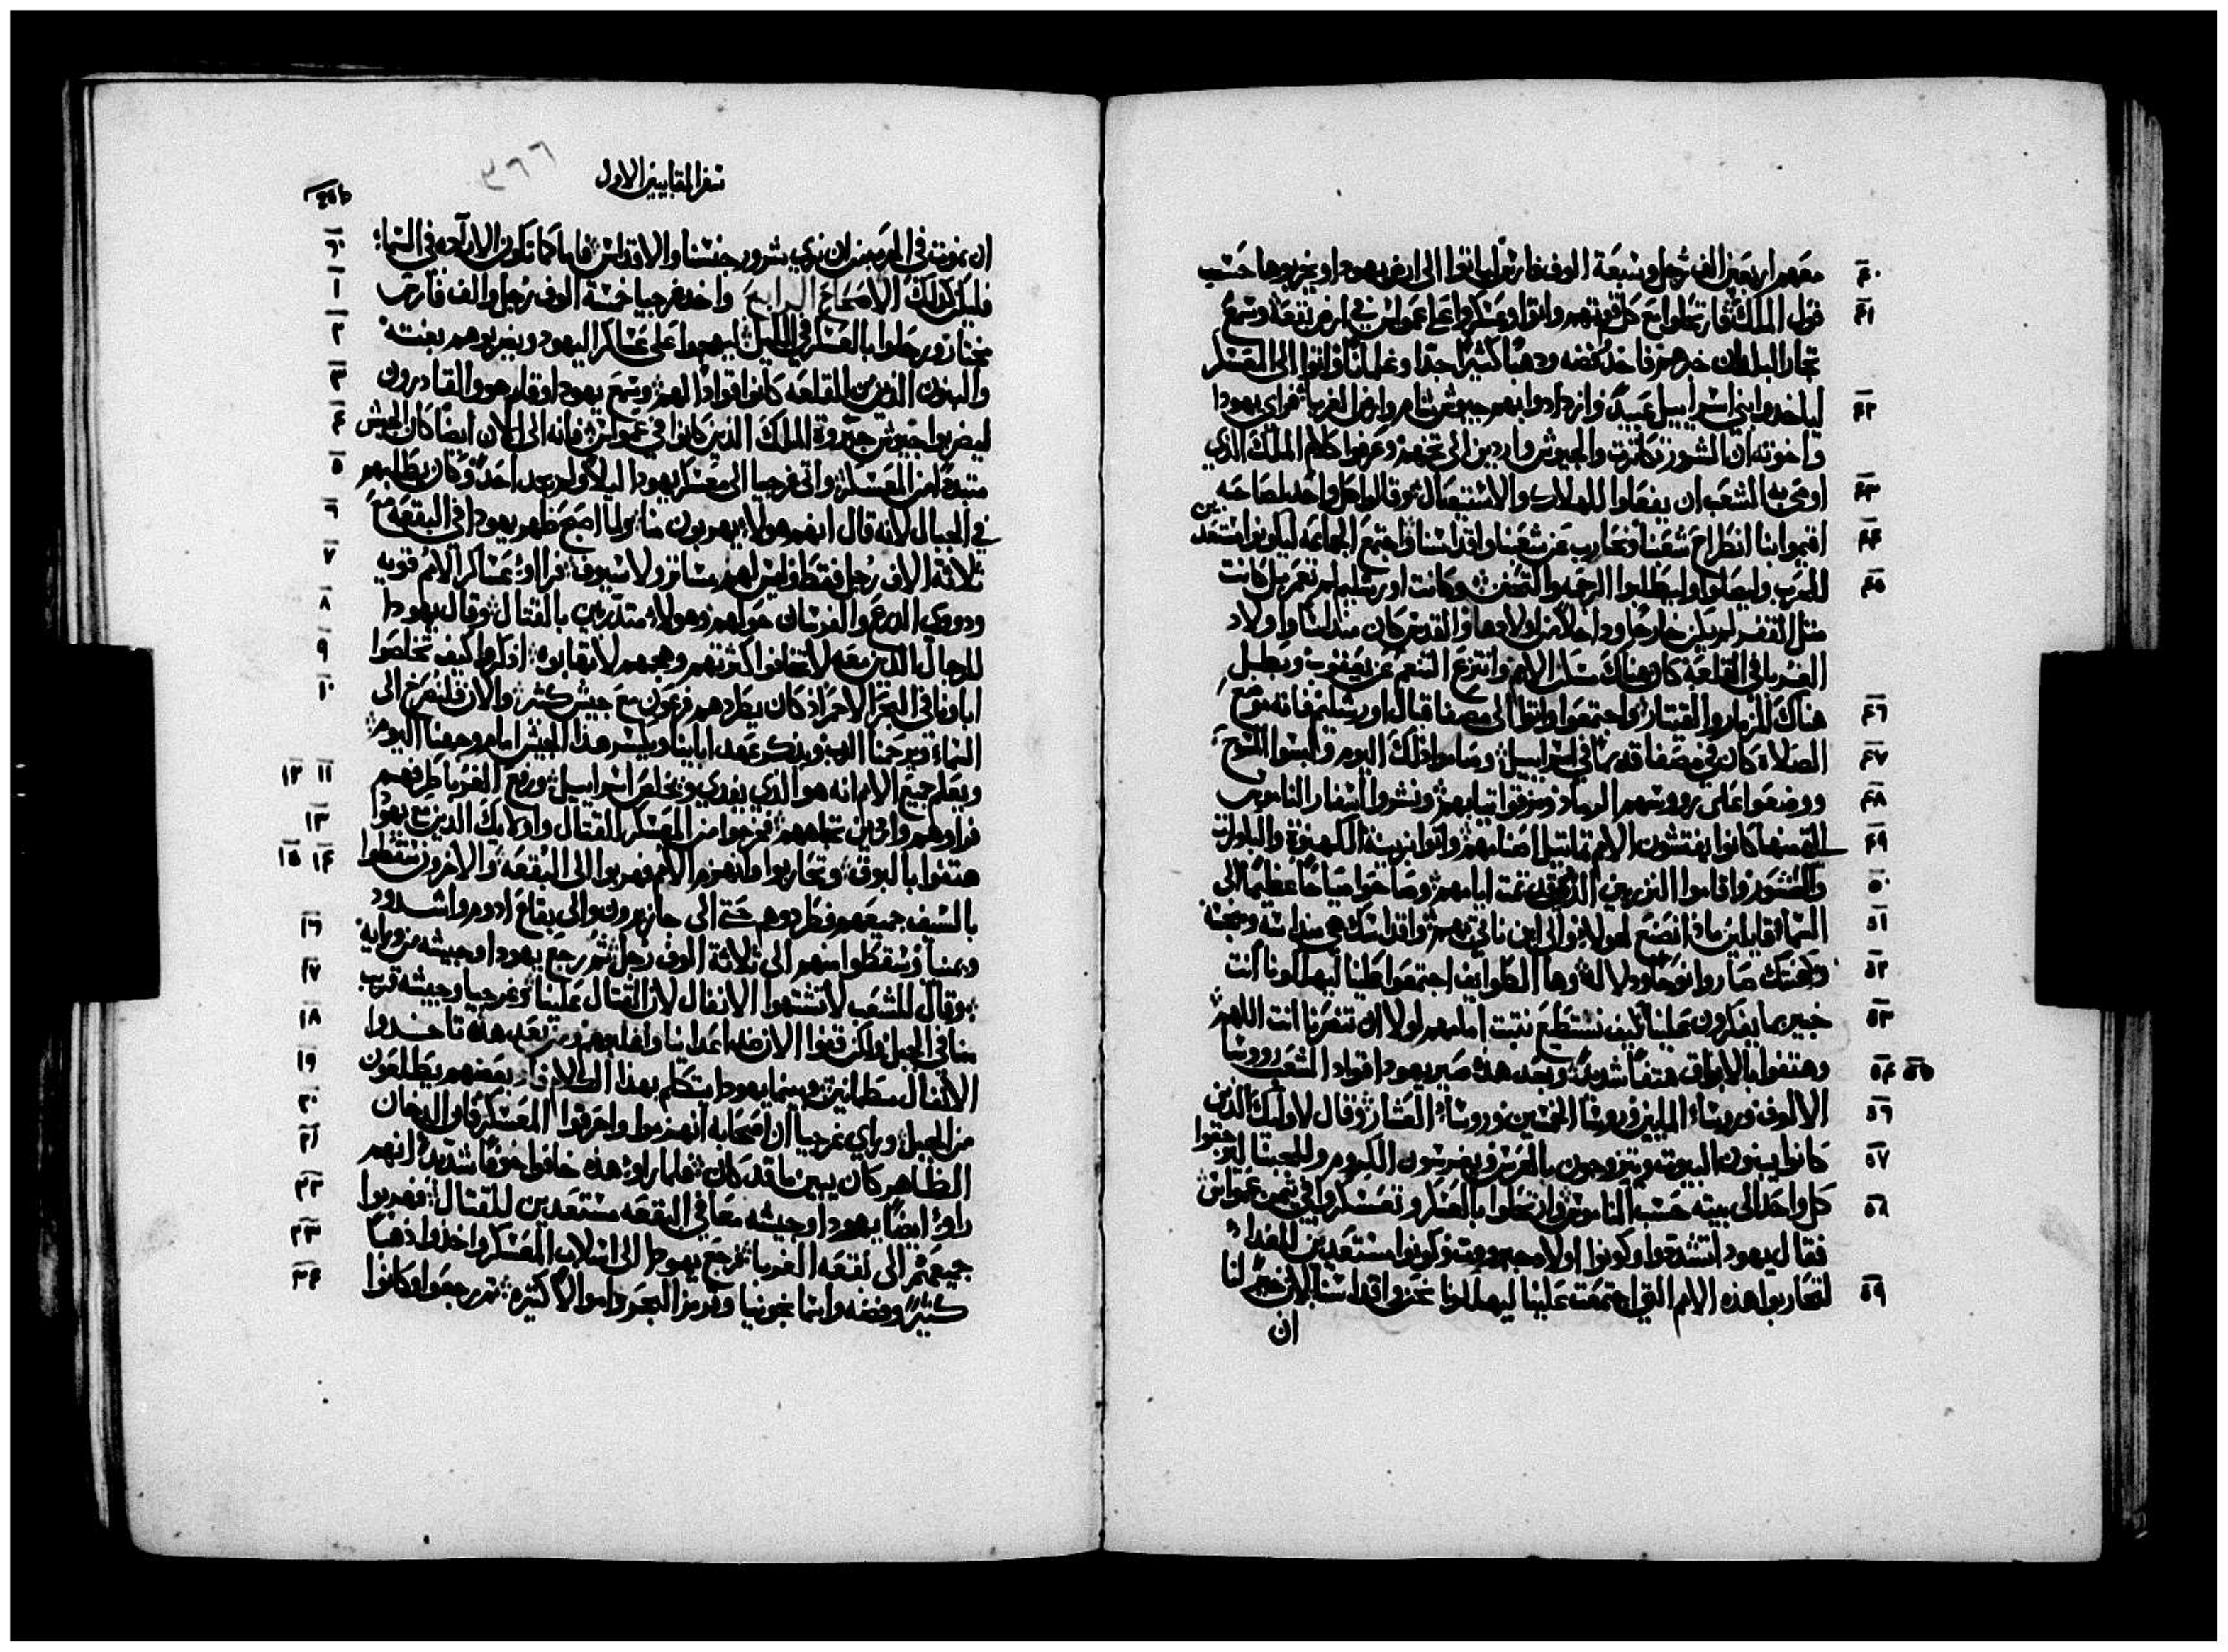 معهم اربعين الف رجل وسبعة الوف فارس لياتوا الى ارض يهودا ويخربوها حسب
قول الملك فارتحلوا مع كل قوتهم واتوا وعسكروا على عمواس في ارض بقعة وسمع
تجار البلدان خبرهم فاخذوا فضه ودهبا كثيرا جدا وغلمانا واتوا الى المعسكر
لياخدوا بني اسراييل عبيدا وازدادوا بهم جيوش شام وارض الغربا فراى يهودا
واخوته ان الشرور تكاثرت والجيوش واردين الى تخمهم وعرفوا كلام الملك الذي
اوصى به الشعب ان يفعلوا للهلاك والاستيصال وقالوا كل واحد لصاحبه
اقيموا بنا انطراح شعبنا ونحارب عن شعبنا واقداسنا واجتمع الجماعه ليكونوا مستعدين
للحرب وليصلوا وليطلبوا الرحمه والتحنن وكانت اورشليم لم تعمر بل كانت
مثل القفر لم يكن خارجا وداخلا من اولادها والقدس كان منداسا واولاد
الغربا في القلعة كان هناك مسكن الامم وانتزع التنعم عن يعقوب وبطل
هناك المزمار والقيتار واجتمعوا واتوا الى مصفا قبال اورشليم فانه موضع
الصلاة كان في مصفا قديما في اسراييل وصاموا ذلك اليوم ولبسوا المسوح
ووضعوا على رووسهم الرماد ومزقوا تيابهم ونشروا اسفار الناموس
التي منها كانوا يفتشون الامم تماتيل اصنامهم واتوا بزينة الكهنوة والباكورات
والعشور واقاموا النزريين الذين تمت ايامهم وصاخوا صياحا عظيما الى
السماء قايلين مادا نصنع لهولاء والى اين ناتي بهم واقداسك هي منداسه ومنجسه
وكهنتك صاروا نوحا ودلاله وها الطوايف اجتمعوا علينا ليهلكونا انت
خبير بما يفكرون علينا كيف نستطيع نتبت امامهم لولا ان تنصرنا انت اللهم
وهتفوا بالابواق هتفا شديدا وبعد هذه صير يهودا قوادا للشعب رووسا
الالوف ورووساء الميين ورووسا الخمسين ورووساء العشار وقال لاولايك الذين
كانوا يبنون البيوت ويتزوجون بالعرس ويغرسون الكروم وللجبنا ليرجعوا
كل واحد الى بيته حسب الناموس وارتحلوا بالعسكر وتعسكروا في تيمن عمواس
فقال يهودا تشددوا وكونوا اولاد جبروت وكونوا مستعدين للغداه
لتحاربوا هذه الامم التي اجتمعت علينا ليهلكونا نحن واقداسنا لان خير لنا
ان
سفر المقابيين الاول
٣٦٦
ان نموت في الحرب من ان نرى شرور جنسنا والاقداس فاما كما تكون الاراده في السماء
فليكن كذلك الاصحاح الرابع واخذ غرجيا خمسة الوف رجل والف فارس
مختاره ورحلوا بالعسكر في الليل ليهجموا على عسكر اليهود ويضربوهم بغتة
والبنون الذين من القلعه كانوا قوادا لهم وسمع يهودا وقام هو والقادرون
ليضربوا جيوش جبروة الملك الذين كانوا في عمواس فانه الى الان ايضا كان الجيش
متبددا من المعسكر واتى غرجيا الى معسكر يهودا ليلا ولم يجد احدا وكان يطلبهم
في الجبال لانه قال انهم هولاء يهربون منا ولما اصبح ظهر يهودا في البقعه مع
ثلاثة الاف رجل فقط وليس لهم ستاتر ولا سيوف فراوا عساكر الامم قويه
ودووي الدرع والفرسان حولهم وهولاء متدربين بالقتال وقال يهودا
للرجال الذين معه لا تخافوا كثرتهم وهجمهم لا تهابوه اذكروا كيف تخلصوا
اباونا في البحر الاحمر اذ كان يطردهم فرعون مع جيش كثير والان فلنصرخ الى
السماء ويرحمنا الرب ويذكر عهد ابايينا ويكسر هذا الجيش امام وجهنا اليوم
ويعلم جميع الامم انه هو الذي يفدي ويخلص اسراييل ورفع الغربا طرفهم
فراوهم واردين تجاههم فخرجوا من المعسكر للقتال واولايك الذين مع يهودا
هتفوا بالبوق وتحاربوا وانهزم الامم فهربوا الى البقعه والاخرون سقطوا
بالسيف جميعهم وطردوهم حتى الى جازيرون والى بقاع ادوم واشدود
ويمنيا وسقطوا منهم الى ثلاثة الوف رجل ثم رجع يهودا وجيشه من ورايه
وقال للشعب لا تشتهوا الانفال لان القتال علينا وغرجيا وجيشه قرب
منا في الجبل ولكن قفوا الان ضد اعدانا واغلبوهم وبعد هذه تاخدوا
الانفال مطمانين وبينما يهودا يتكلم بهذا الكلام فاذا بعضهم يطلعون
من الجبل وراى غرجيا ان اصحابه انهزموا واحرقوا المعسكر فان الدخان
الظاهر كان يبين ما قد كان فلما راوا هذه خافوا خوفا شديدا انهم
راوا ايضا يهودا وجيشه معا في البقعه مستعدين للقتال فهربوا
جميعهم الى بقعه الغربا فرجع يهودا الى اسلاب المعسكر واخذوا ذهبا
كثيرا وفضه واسما نجونيا وقرمز البحر واموالا كثيره ثم رجعوا وكانوا